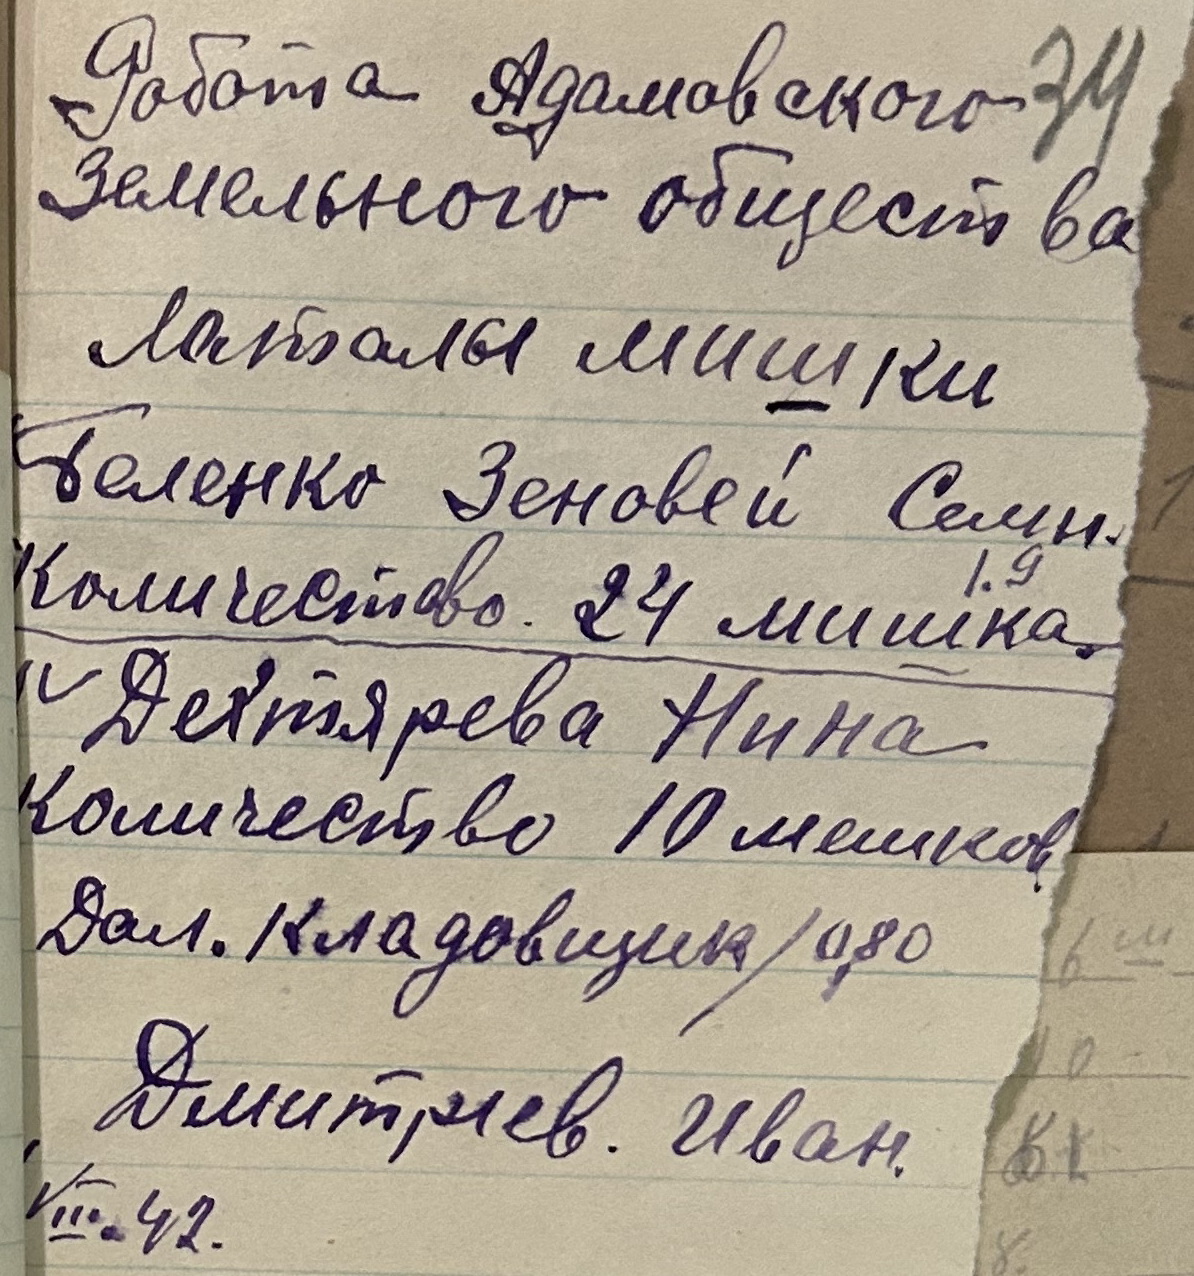 Робота Адамовского 34
Земельного общества
Латалы мишки
Беленко Зеновей Семн.
1.9
Количество. 24 мишка.
Дехтярева Нина
Количество 10 мешков
Дал. Кладовщик / 0,80
Дмитриев. Иван.
VIII. 42.